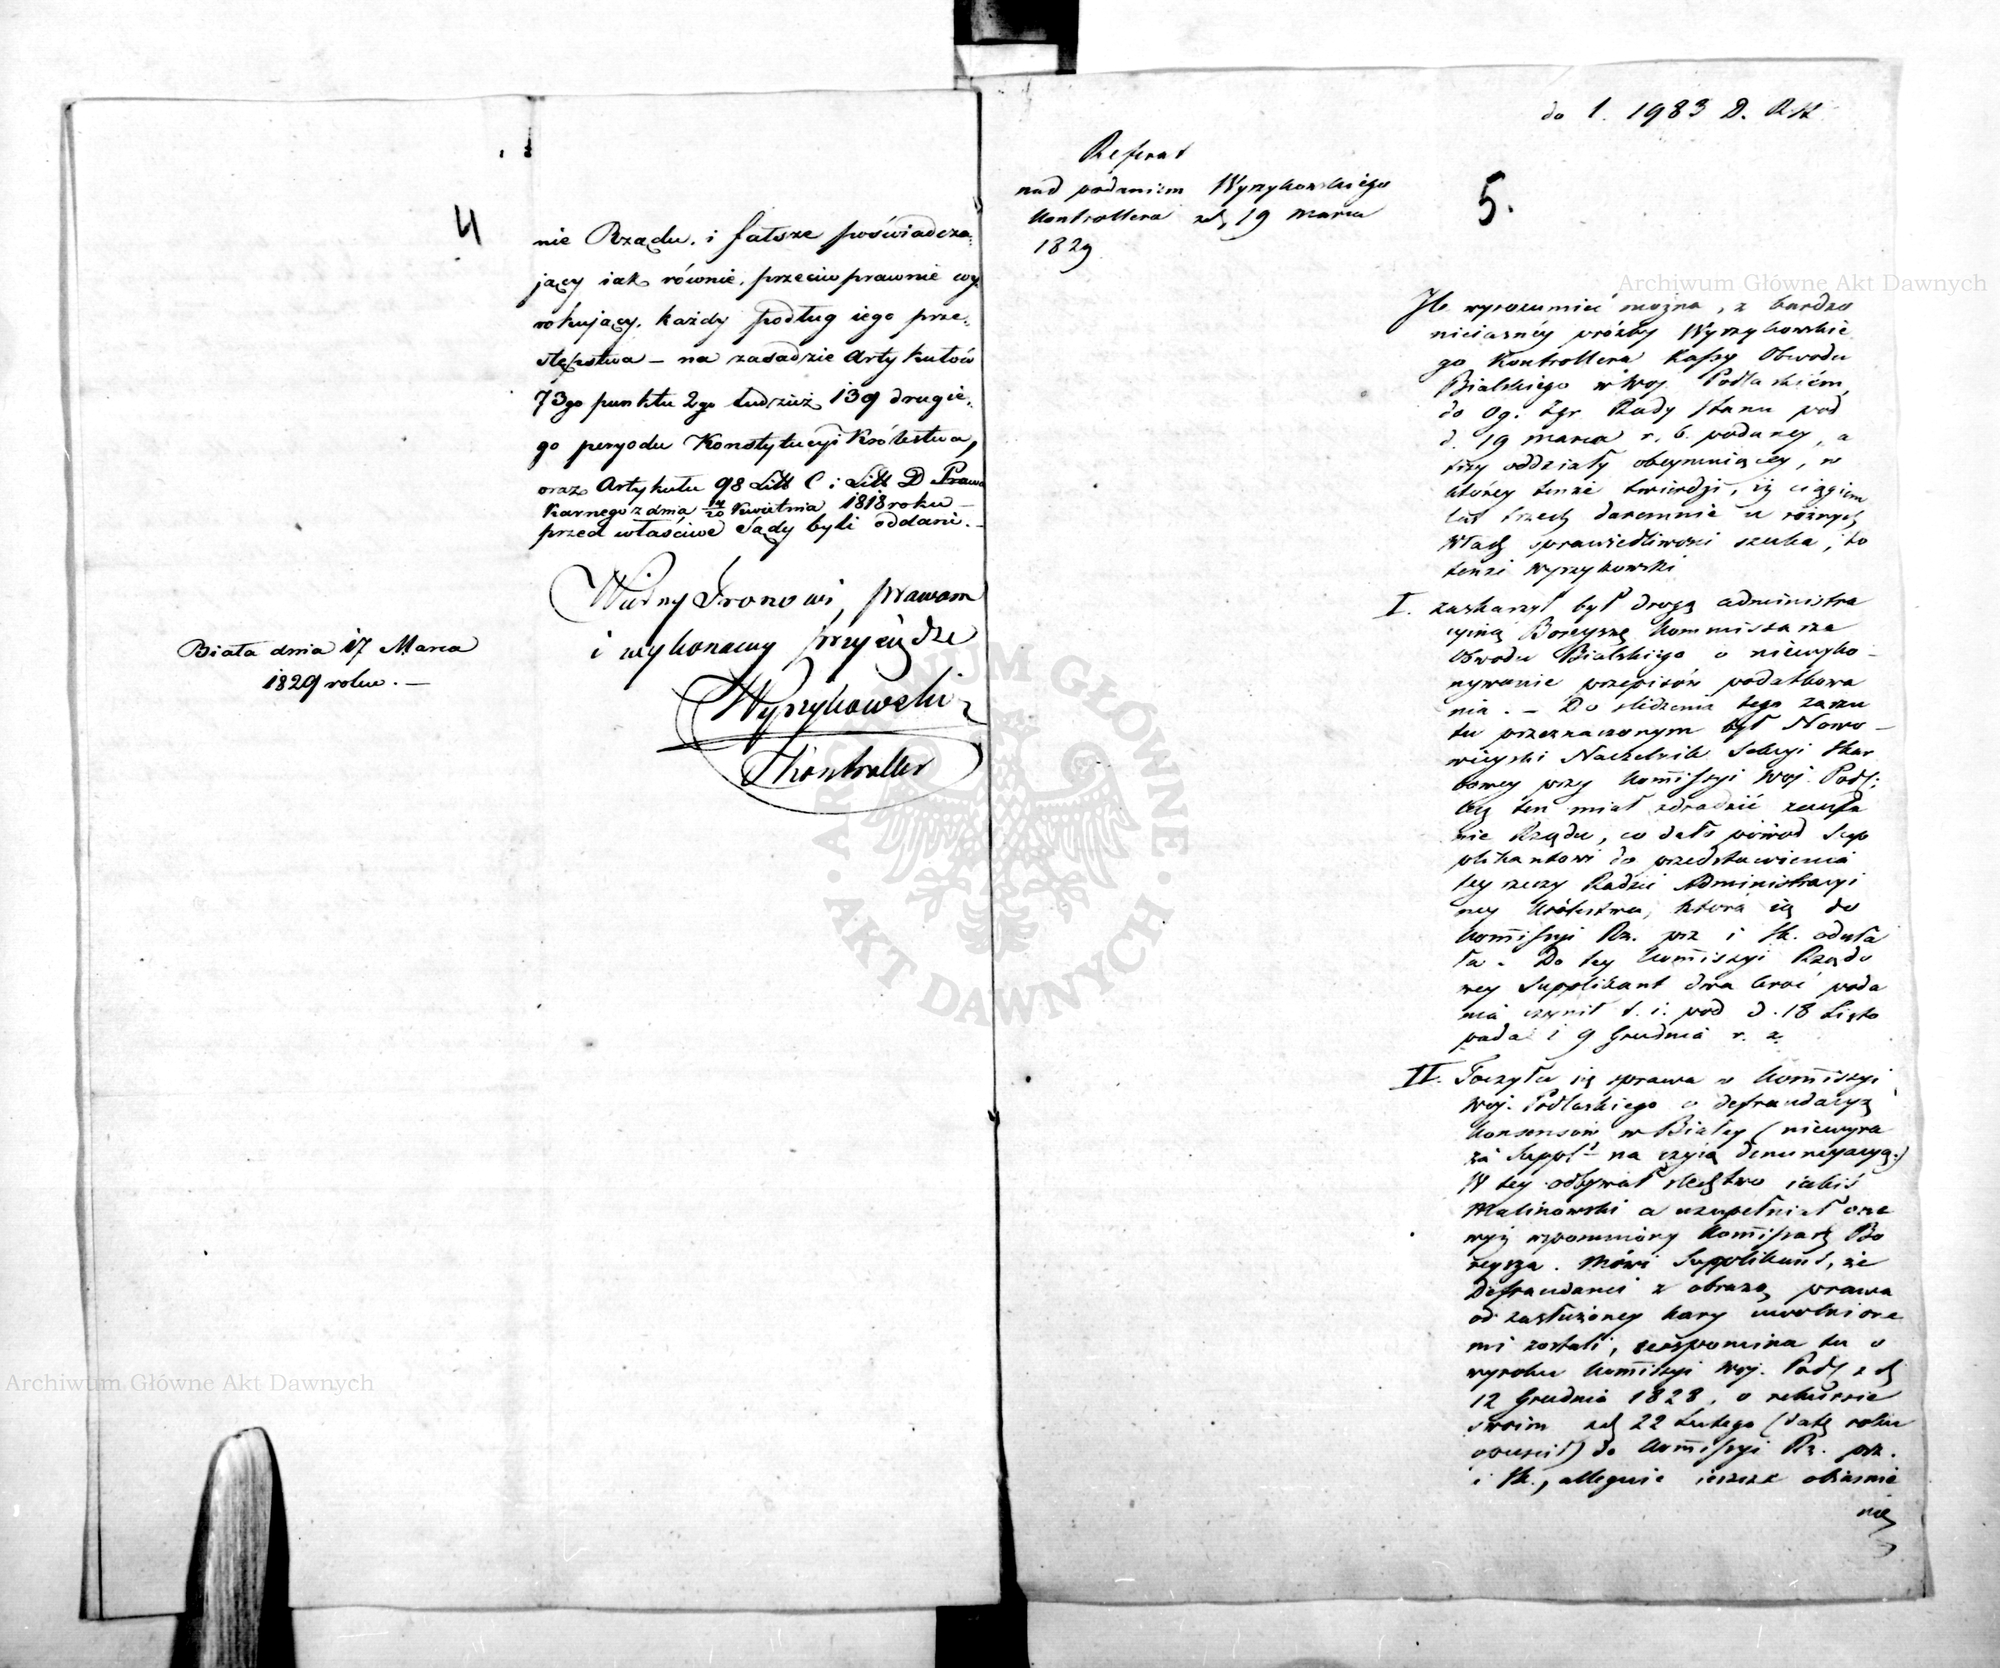 4
nie Rządu, i fałsze poświadcza-
jący iak równie, przeciw prawnie wy
rokujący, każdy podług iego prze-
stępstwa — na zasadzie Artykułów
73go punktu 2go tudzież 139 drugie-
go peryodu Konstytucyi Królestwa,
oraz Artykułu 98 Litt C i Litt D Prawa
Karnego z dnia Kwietnia 1818 roku —
przed właściwe Sądy byli oddani. —
Wierny Tronowi, prawom
i wykonawcy przysiędze
Wyszykowski
Kontroller
Biała dnia 17 Marca
1829 roku. —
do 1. 1983 D. R. St
Referat
nad podaniem Wyszykowskiego
Kontrollera zd 19 marca
1829
5.
Ile wyrozumieć można, z bardzo
nieiasnéy prózby Wyszykowskie
go Kontrollera Kassy Obwodu
Bialskiego w Woj. Podlaskiém,
do Og. Zgr. Rady Stanu pod
d. 19 marca r. b. podaney, a
trzy oddziały obeymuiącey, w
którey tenże twierdzi, iż ciągiem
lat trzech daremnie u różnych
Władz sprawiedliwości szuka, to
tenże Wyszykowski
I. zaskarżył był drogą administra
cyiną Boreyszę Kommissarza
Obwodu Bialskiego o niewyko-
nywanie przepisów podatkowa
nia. — Do śledzenia tego zarzu
tu przeznaczonym był Nowo-
wieyski Naczelnik Sekcyi Skar
bowey przy Komissyi Woj. Podl:
lecz ten miał zdradzić zaufa
nie Rządu, co dało powód Sup
plikantowi do przedstawienia
tey rzeczy Radzie Administracyi
ney Królestwa, która ią do
Komissyi Rz. prz i Sk. odesła
ła. Do tey Komissyi Rządo
wey Supplikant dwa kroć poda
nia czynił t. i. pod d. 18 Listo
pada i 9 Grudnia r. z.
II. Toczyła się sprawa w Komissyi
Woj. Podlaskiego o defraudacyą
Konsensów w Białey (niewyra
ża Suppl. na czyią denuncyacyą.)
W tey odbywał śledztwo iakiś
Malinowski a uzupełniał one
wyż wspomniony Komissarz Bo
reysza. Mówi Supplikant, że
Defraudanci z obrazą prawa
od zasłużoney kary uwolnione
mi zostali, wspomina tu o
wyroku Komissyi Woj. Podl z d
12 Grudnia 1828, o rekursie
swoim zd 22 Lutego (datę roku
opuścił) do Komissyi Rz. prz.
i Sk., alleguie ieszcze obiasnie
nie
Archiwum Główne Akt Dawnych
Archiwum Główne Akt Dawnych
ARCHIWUM GŁÓWNE · AKT DAWNYCH ·